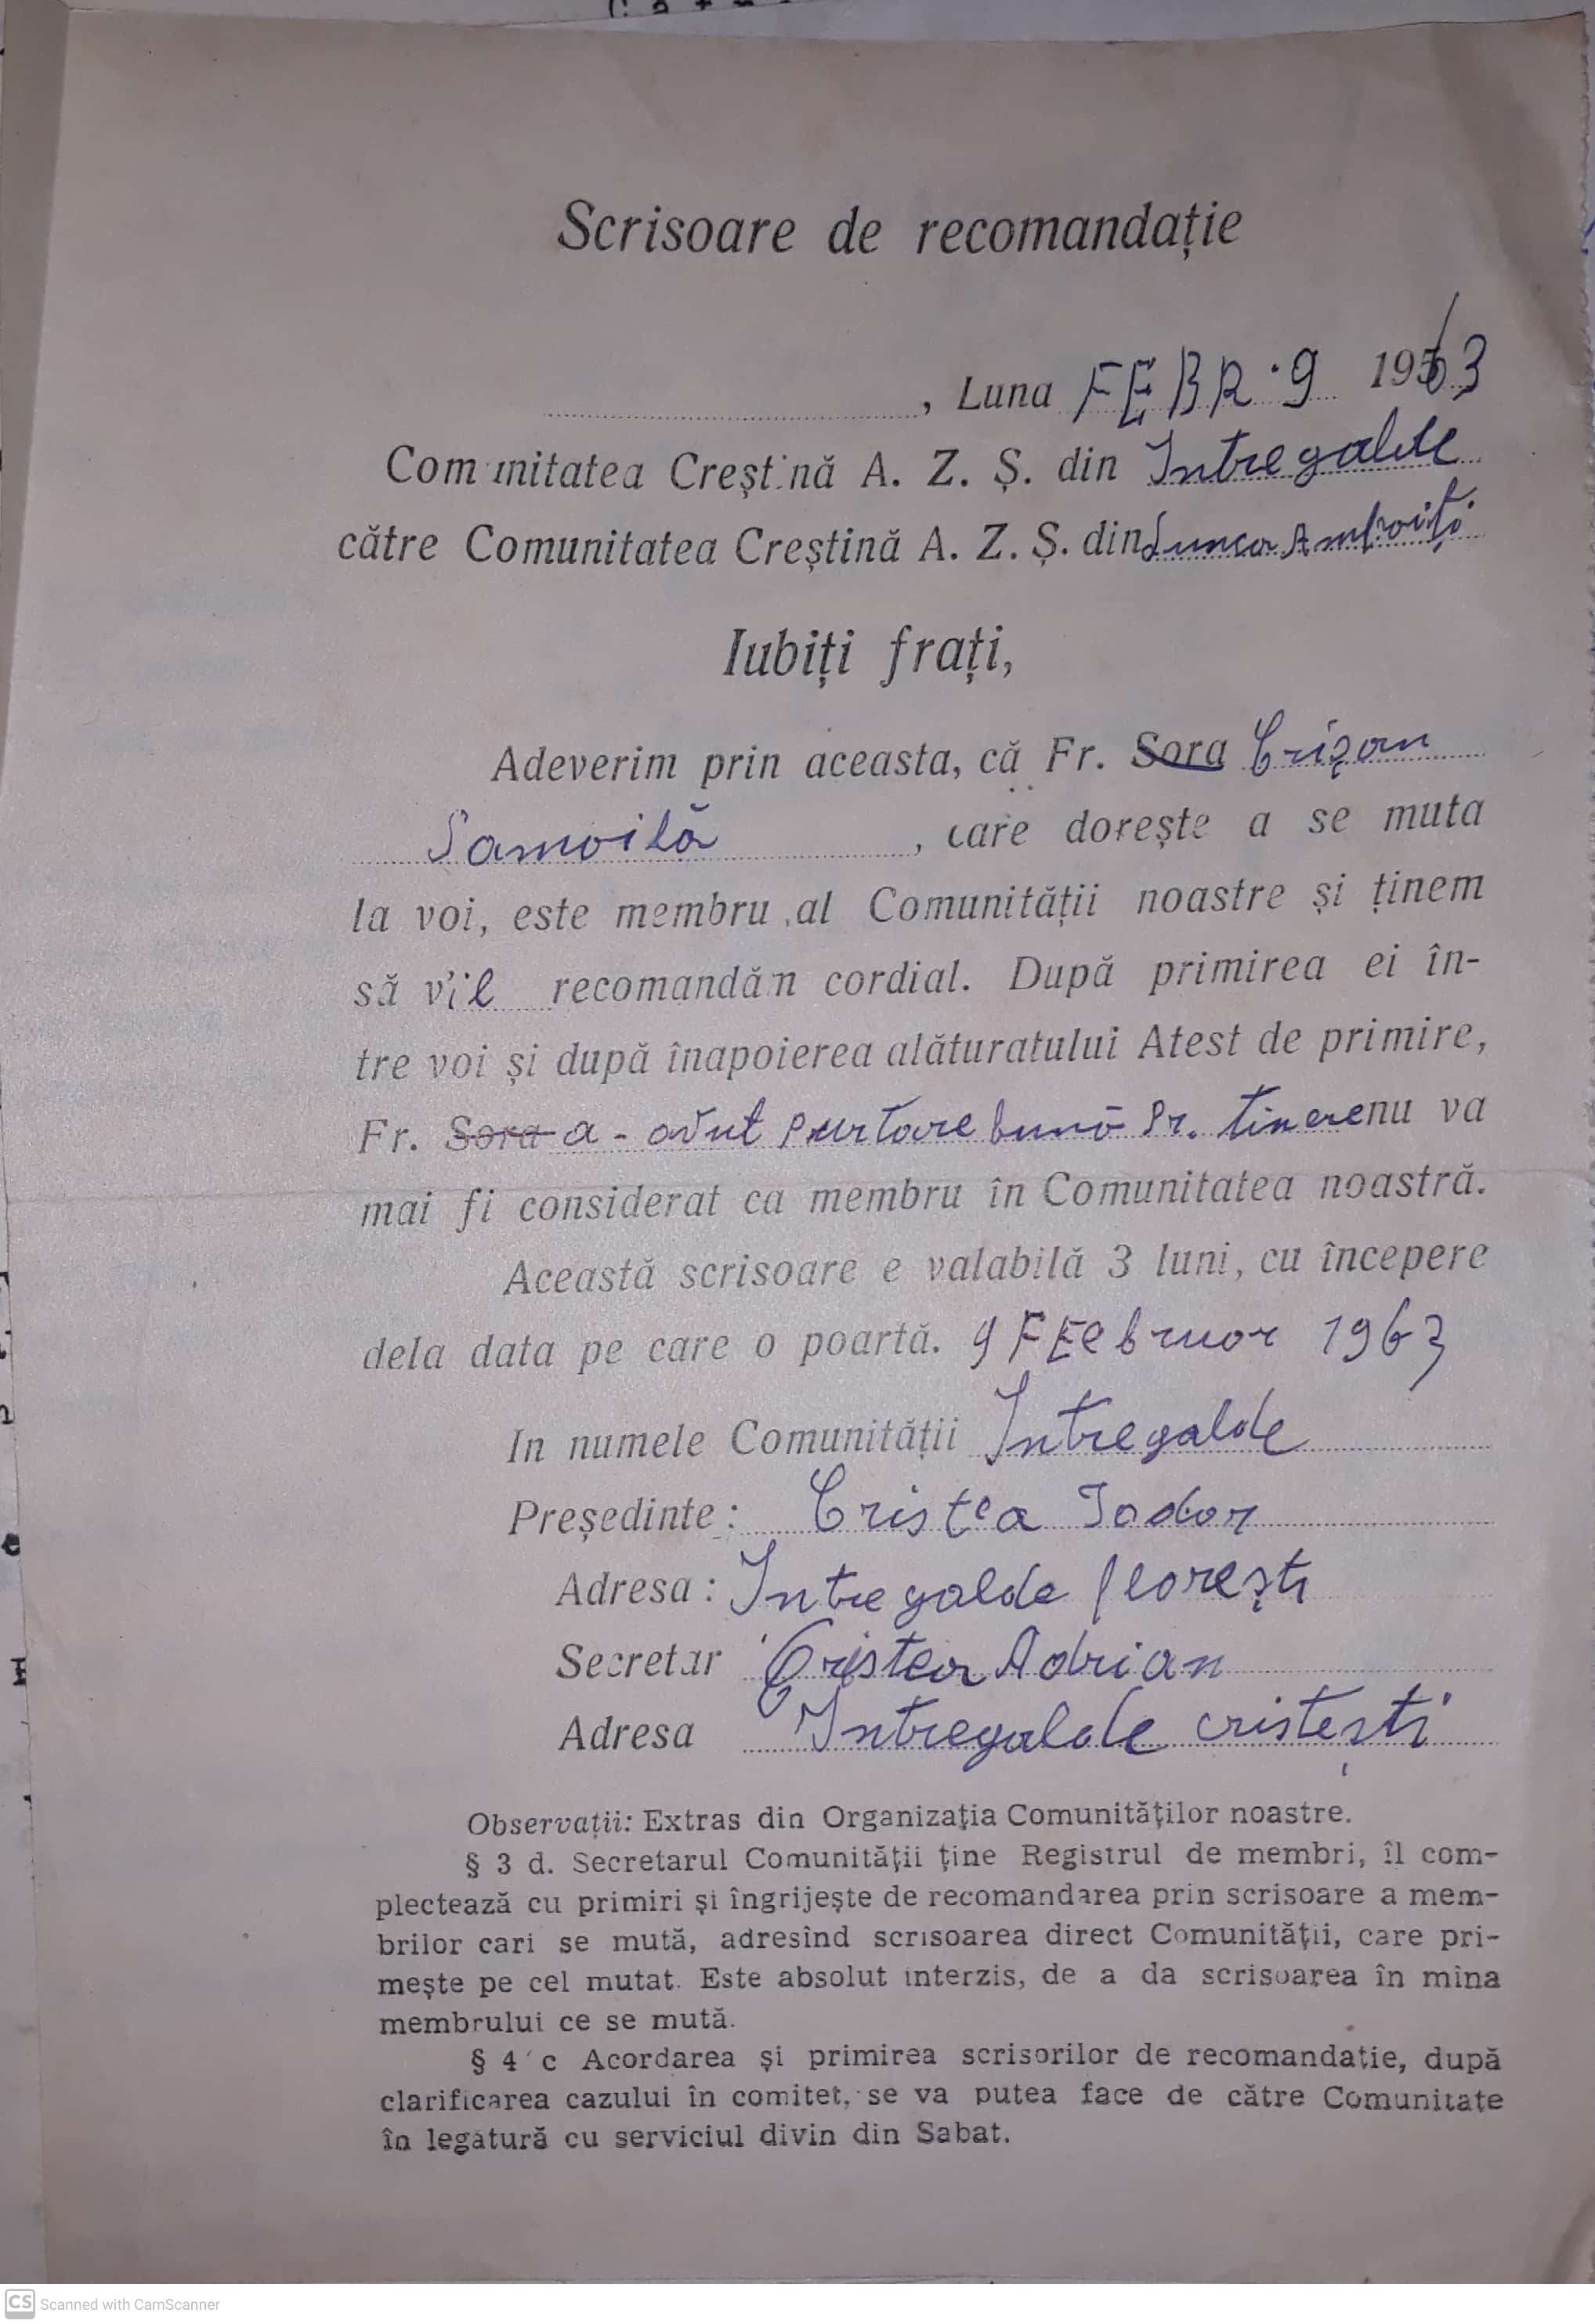 Scrisoare de recomandație
, Luna FEBR. 9 1963
Comunitatea Creștină A. Z. Ș. din Intregalde
către Comunitatea Creștină A. Z. Ș. din Lunca Ampoiți
Iubiți frați,
Adeverim prin aceasta, că Fr. Sora Crișan
Samoilă, care dorește a se muta
la voi, este membru al Comunității noastre și ținem
să vi'l recomandăm cordial. După primirea ei în-
tre voi și după înapoierea alăturatului Atest de primire,
Fr. Sora a-avut purtare bună Pr. tinere nu va
mai fi considerat ca membru în Comunitatea noastră.
Această scrisoare e valabilă 3 luni, cu începere
dela data pe care o poartă. 9 FEebruar 1963
In numele Comunității Intregalde
Președinte: Cristea Todor
Adresa: Intregalde florești
Secretar Cristea Adrian
Adresa Intregalde cristești
Observații: Extras din Organizația Comunităților noastre.
§ 3 d. Secretarul Comunității ține Registrul de membri, îl com-
plectează cu primiri și îngrijește de recomandarea prin scrisoare a mem-
brilor cari se mută, adresînd scrisoarea direct Comunității, care pri-
mește pe cel mutat. Este absolut interzis, de a da scrisoarea în mîna
membrului ce se mută.
§ 4 c Acordarea și primirea scrisorilor de recomandație, după
clarificarea cazului în comitet, se va putea face de către Comunitate
în legătură cu serviciul divin din Sabat.
CS Scanned with CamScanner